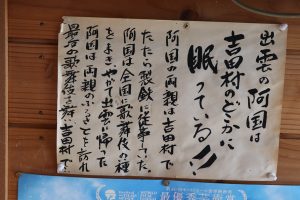 出雲の阿国は
吉田村のどこかに
眠っている!!
阿国の両親は吉田村で
たたら製鉄に従事していた。
阿国は全国に歌舞伎の種
をまき、やがて出雲に帰った
阿国は両親のふるさとを訪れ
最后の歌舞伎を舞、吉田村で